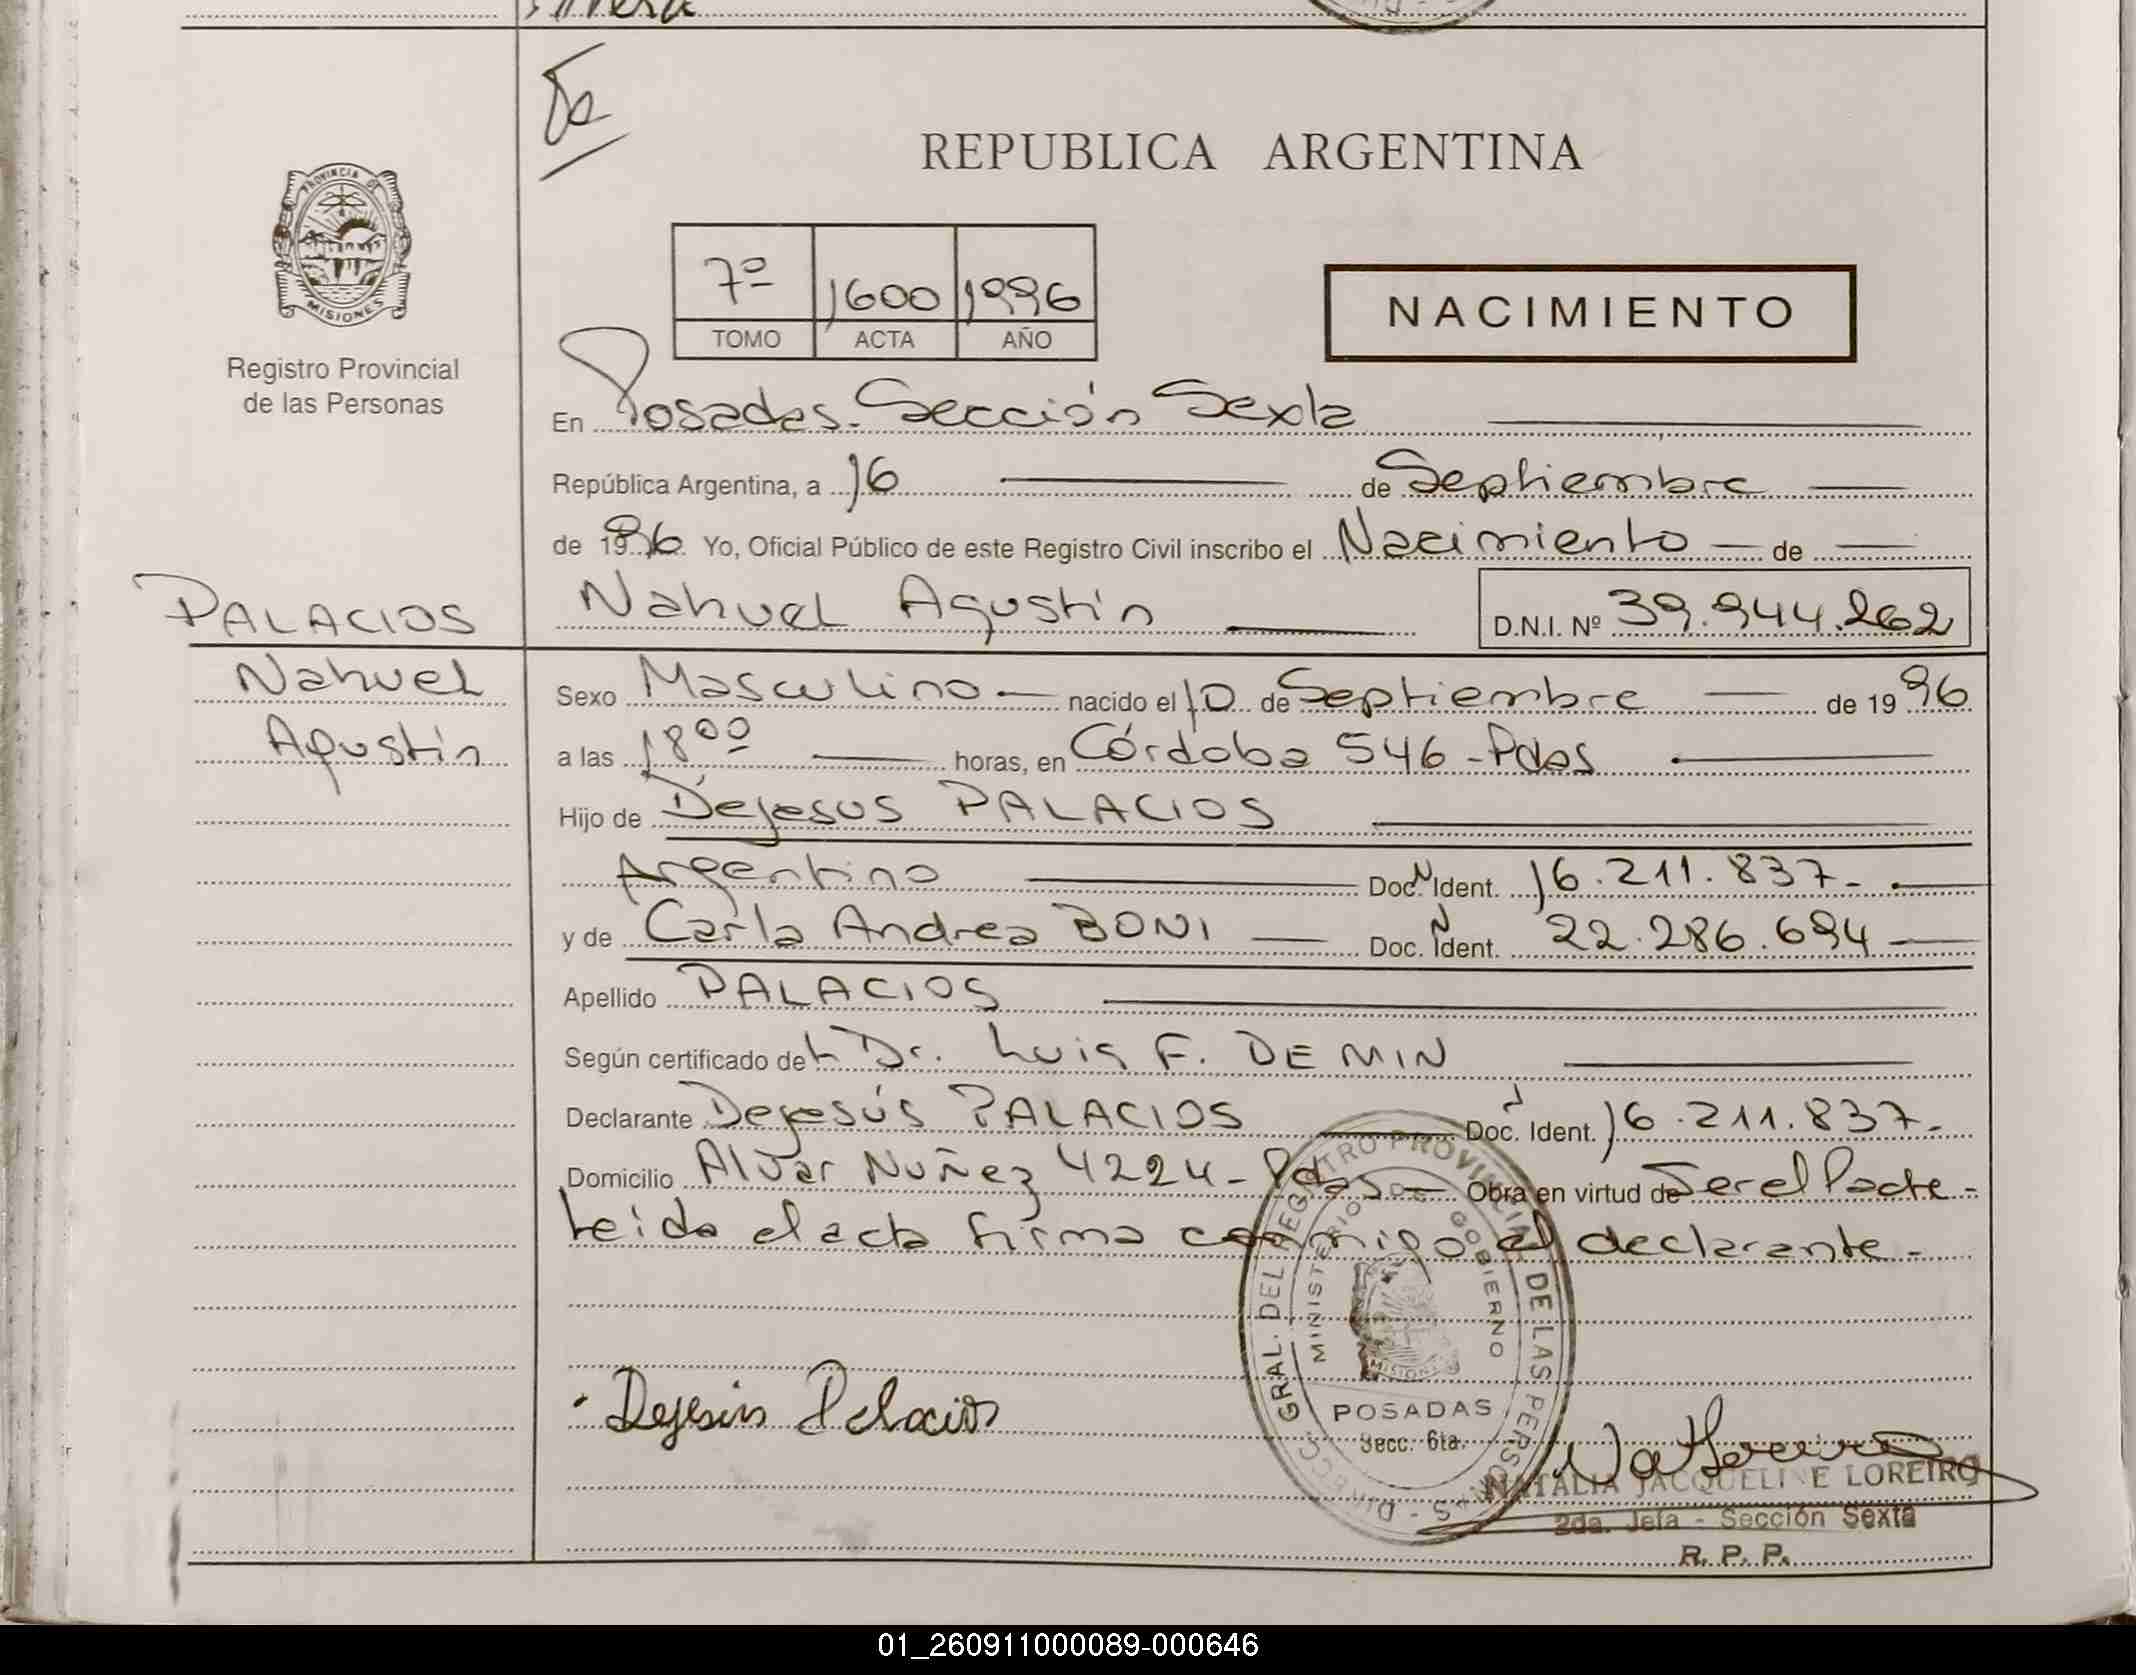 REPUBLICA ARGENTINA
PROVINCIA DE
MISIONES
Registro Provincial
de las Personas
7º 1600 1996
TOMO ACTA AÑO
NACIMIENTO
En Posadas. Sección Sexta
República Argentina, a 16 de Septiembre
de 1996 Yo, Oficial Público de este Registro Civil inscribo el Nacimiento de
PALACIOS Nahuel Agustín D.N.I. Nº 39.944.262
Nahuel Sexo Masculino nacido el 10 de Septiembre de 1996
Agustín a las 18ºº horas, en Córdoba 546 - Pdas
Hijo de Dejesus PALACIOS
Argentino Doc. Ident. 16.211.837-
y de Carla Andrea BONI Doc. Ident. 22.286.694
Apellido PALACIOS
Según certificado del Dr. Luis F. DEMIN
Declarante Dejesús PALACIOS Doc. Ident. 16.211.837-
Domicilio Alvar Nuñez 4224 - Pdas Obra en virtud de Ser el Padre -
Leida el acta firma conmigo el declarante -
DIRECC. GRAL. DEL REGISTRO PROVINCIAL DE LAS PERSONAS
MINISTERIO DE GOBIERNO
MISIONES
POSADAS
Secc. 6ta.
Dejesús Palacios
NATALIA JACQUELINE LOREIRO
2da. Jefa - Sección Sexta
R. P. P.
01_260911000089-000646